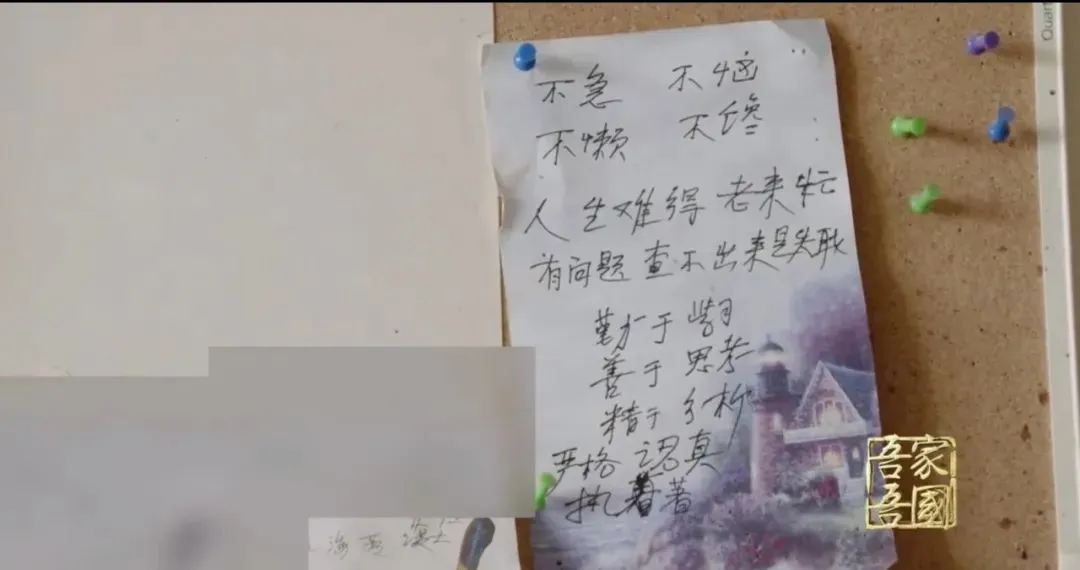 不急 不恼
不懒 不馋
人生难得老来忙
有问题查不出来是失职
勤于学习
善于思考
精于分析
严格 认真
执着
吾家
吾國
Quan